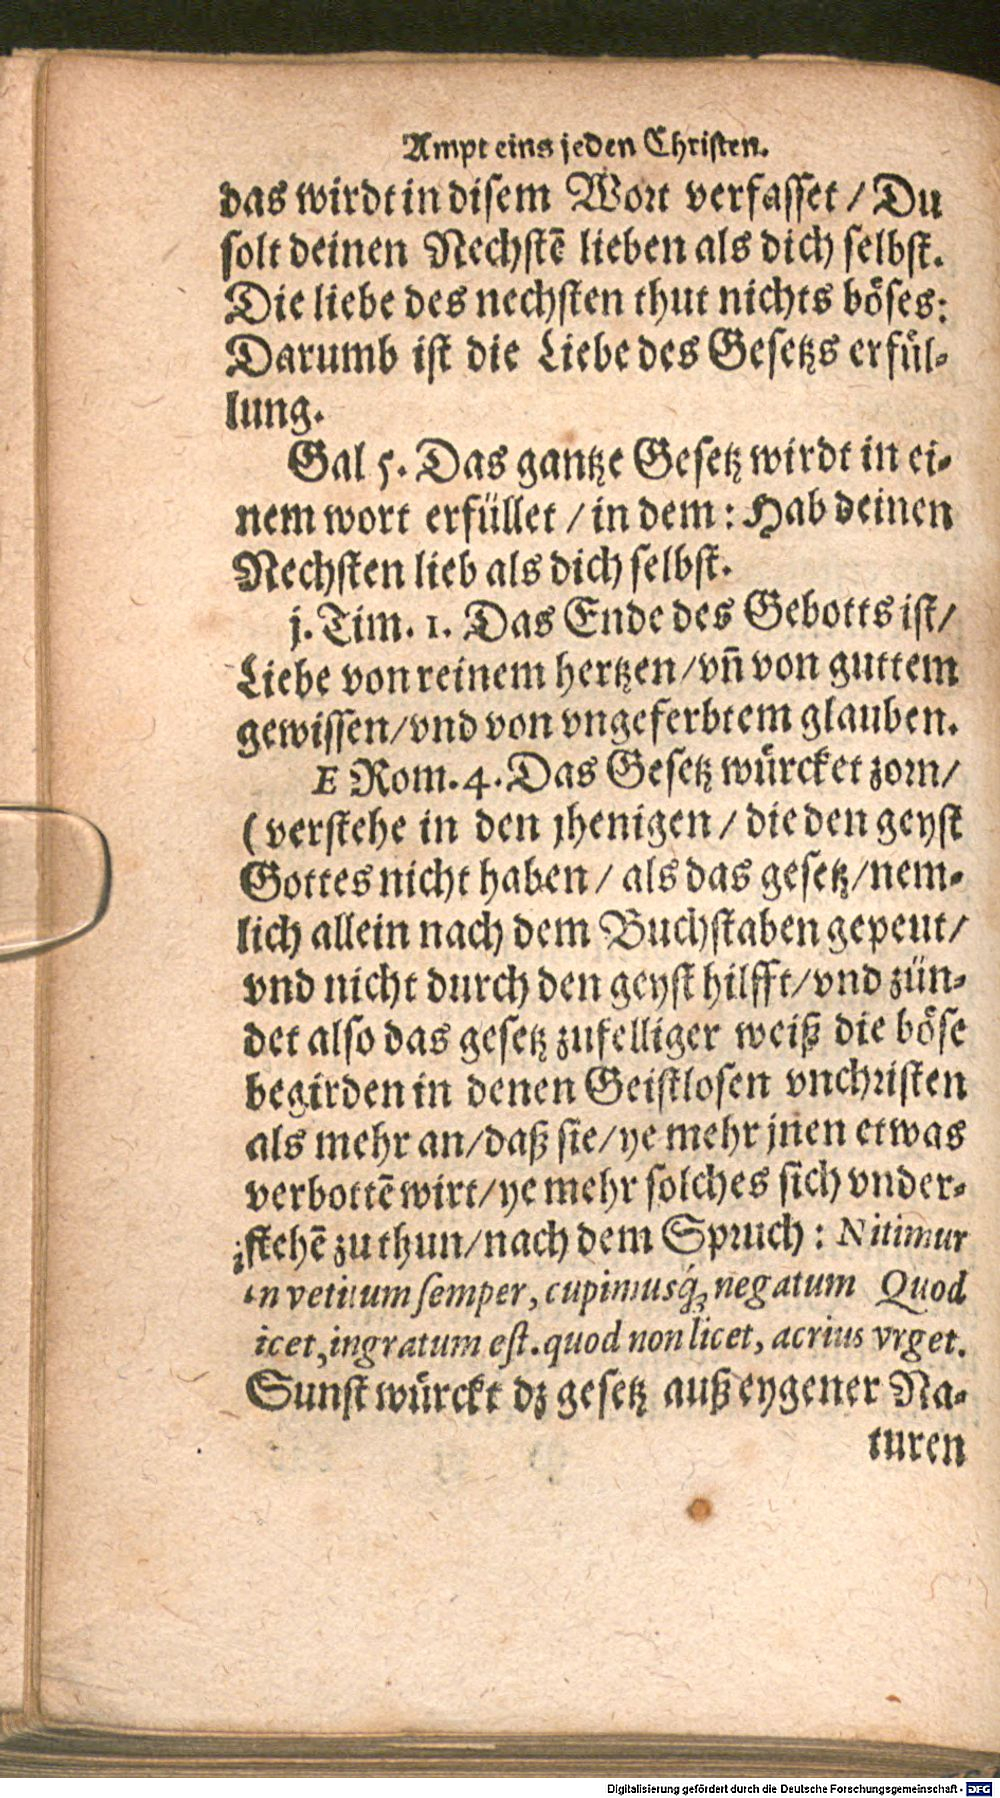 Ampt eins jeden Christen.
das wirdt in disem Wort verfasset / Du
solt deinen Nechstē lieben als dich selbst.
Die liebe des nechsten thut nichts böses:
Darumb ist die Liebe des Gesetzs erfül-
lung.
Gal 5. Das gantze Gesetz wirdt in ei-
nem wort erfüllet / in dem: Hab deinen
Nechsten lieb als dich selbst.
j. Tim. 1. Das Ende des Gebotts ist/
Liebe von reinem hertzen/vñ von guttem
gewissen/vnd von vngeferbtem glauben.
E Rom. 4. Das Gesetz würcket zorn/
(verstehe in den jhenigen / die den geyst
Gottes nicht haben / als das gesetz/nem-
lich allein nach dem Buchstaben gepeut/
vnd nicht durch den geyst hilfft/vnd zün-
det also das gesetz zufelliger weiß die böse
begirden in denen Geistlosen vnchristen
als mehr an/daß sie/ye mehr jnen etwas
verbottē wirt/ye mehr solches sich vnder-
stehē zu thun/nach dem Spruch: Nitimur
in vetitum semper, cupimusq́; negatum Quod
icet, ingratum est. quod non licet, acrius vrget.
Sunst würckt dz gesetz auß eygener Na-
turen
Digitalisierung gefördert durch die Deutsche Forschungsgemeinschaft - DFG